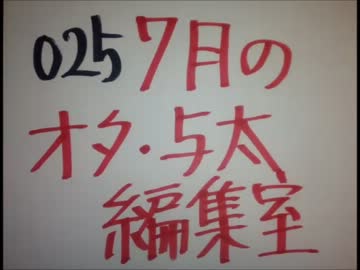 025 7月の
オタ・与太
編集室